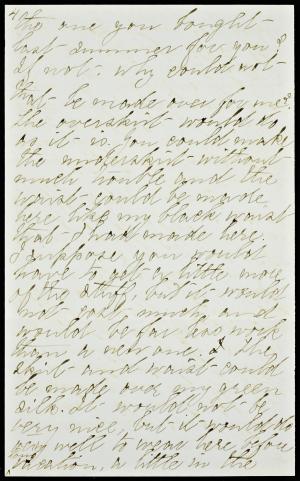 4/
the one you bought
last summer for you?
If not - why could not
that be made over for me?
The overskirt would do
as it is. You could make
the underskirt without
much trouble and the
waist could be made
here like my black waist
that I had made here.
I suppose you would
have to get a little more
of the stuff, but it would
not cost much and
would be far less work
than a new one. & the
skirt and waist could
be made over my green
silk. It would not be
very nice, but it would do
very well to wear here before
vacation, a little in the